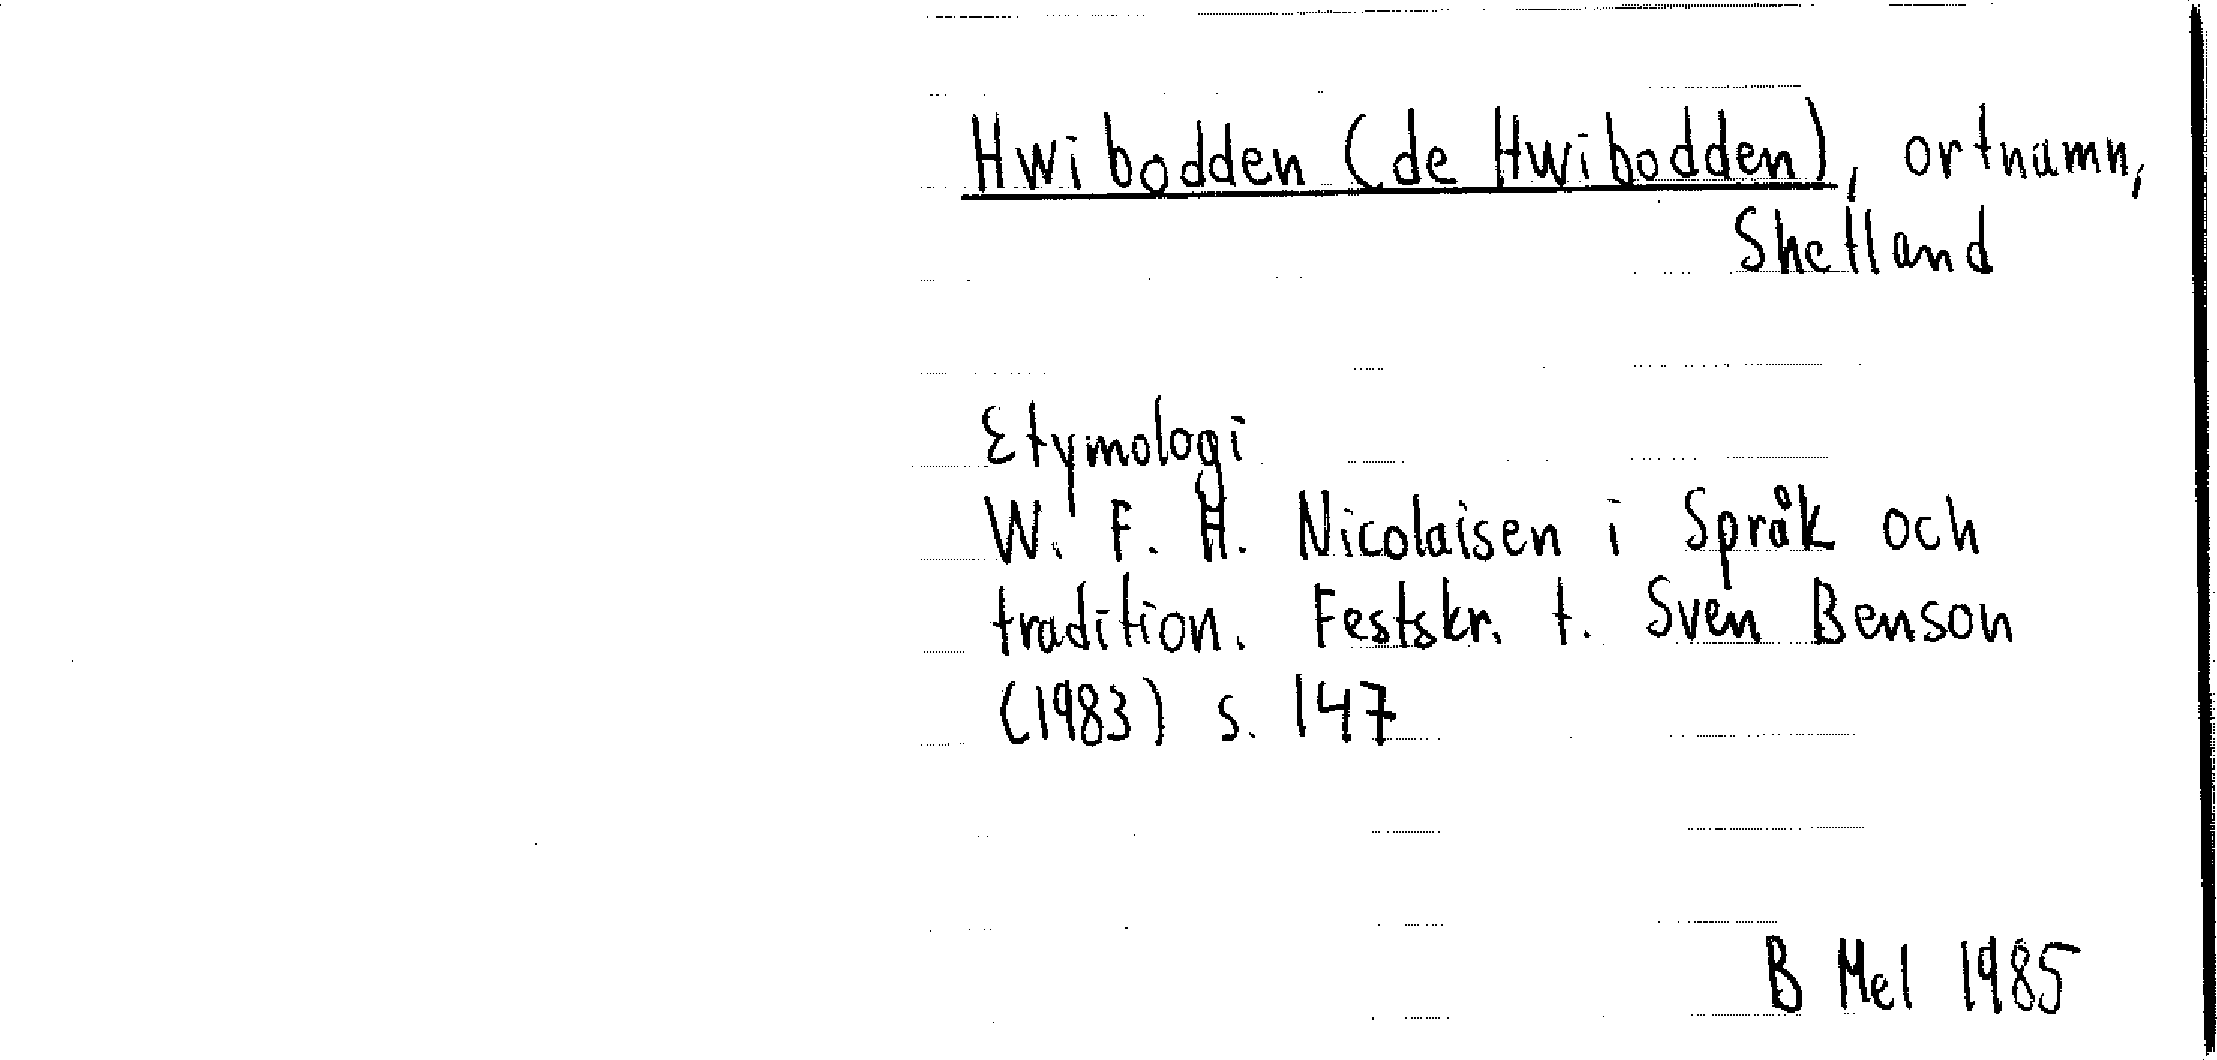 Hwibodden (de Hwibodden), ortnamn,
Shetland
Etymologi
W. F. H. Nicolaisen i Språk och
tradition. Festskr. t. Sven Benson
(1983) s. 147
B Mel 1985